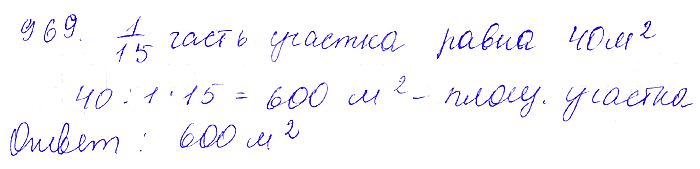 969. 1/15 часть участка равна 40 м²
40 : 1 · 15 = 600 м² – площ. участка
Ответ : 600 м²